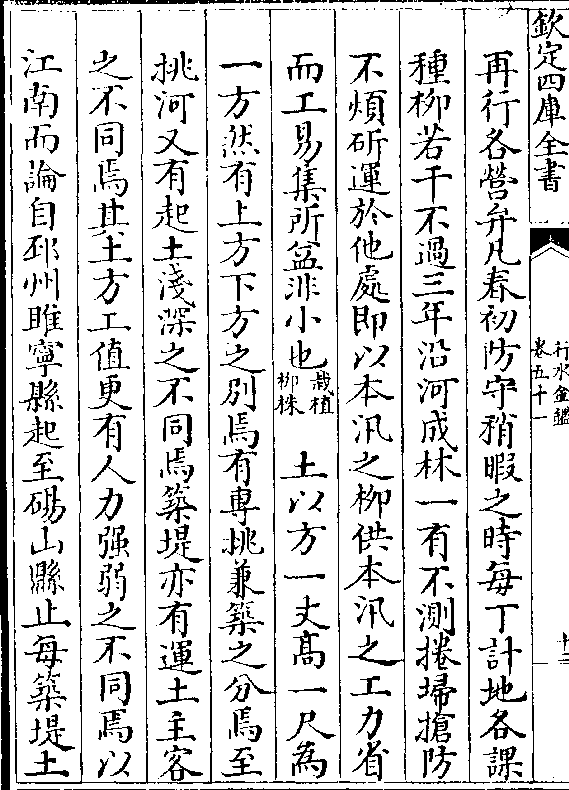 欽定四庫全書
行水金鑑
卷五十一
十三
再行各營弁凡春初防守稍暇之時每丁計地各課
種柳若干不過三年沿河成林一有不測捲埽搶防
不煩斫運於他處即以本汛之柳供本汛之工力省
而工易集所益非小也栽植柳株 土以方一丈高一尺為
一方然有上方下方之別焉有專挑兼築之分焉至
挑河又有起土淺深之不同焉築堤亦有運土主客
之不同焉其土方工值更有人力強弱之不同焉以
江南而論自邳州睢寧縣起至碭山縣止每築堤土